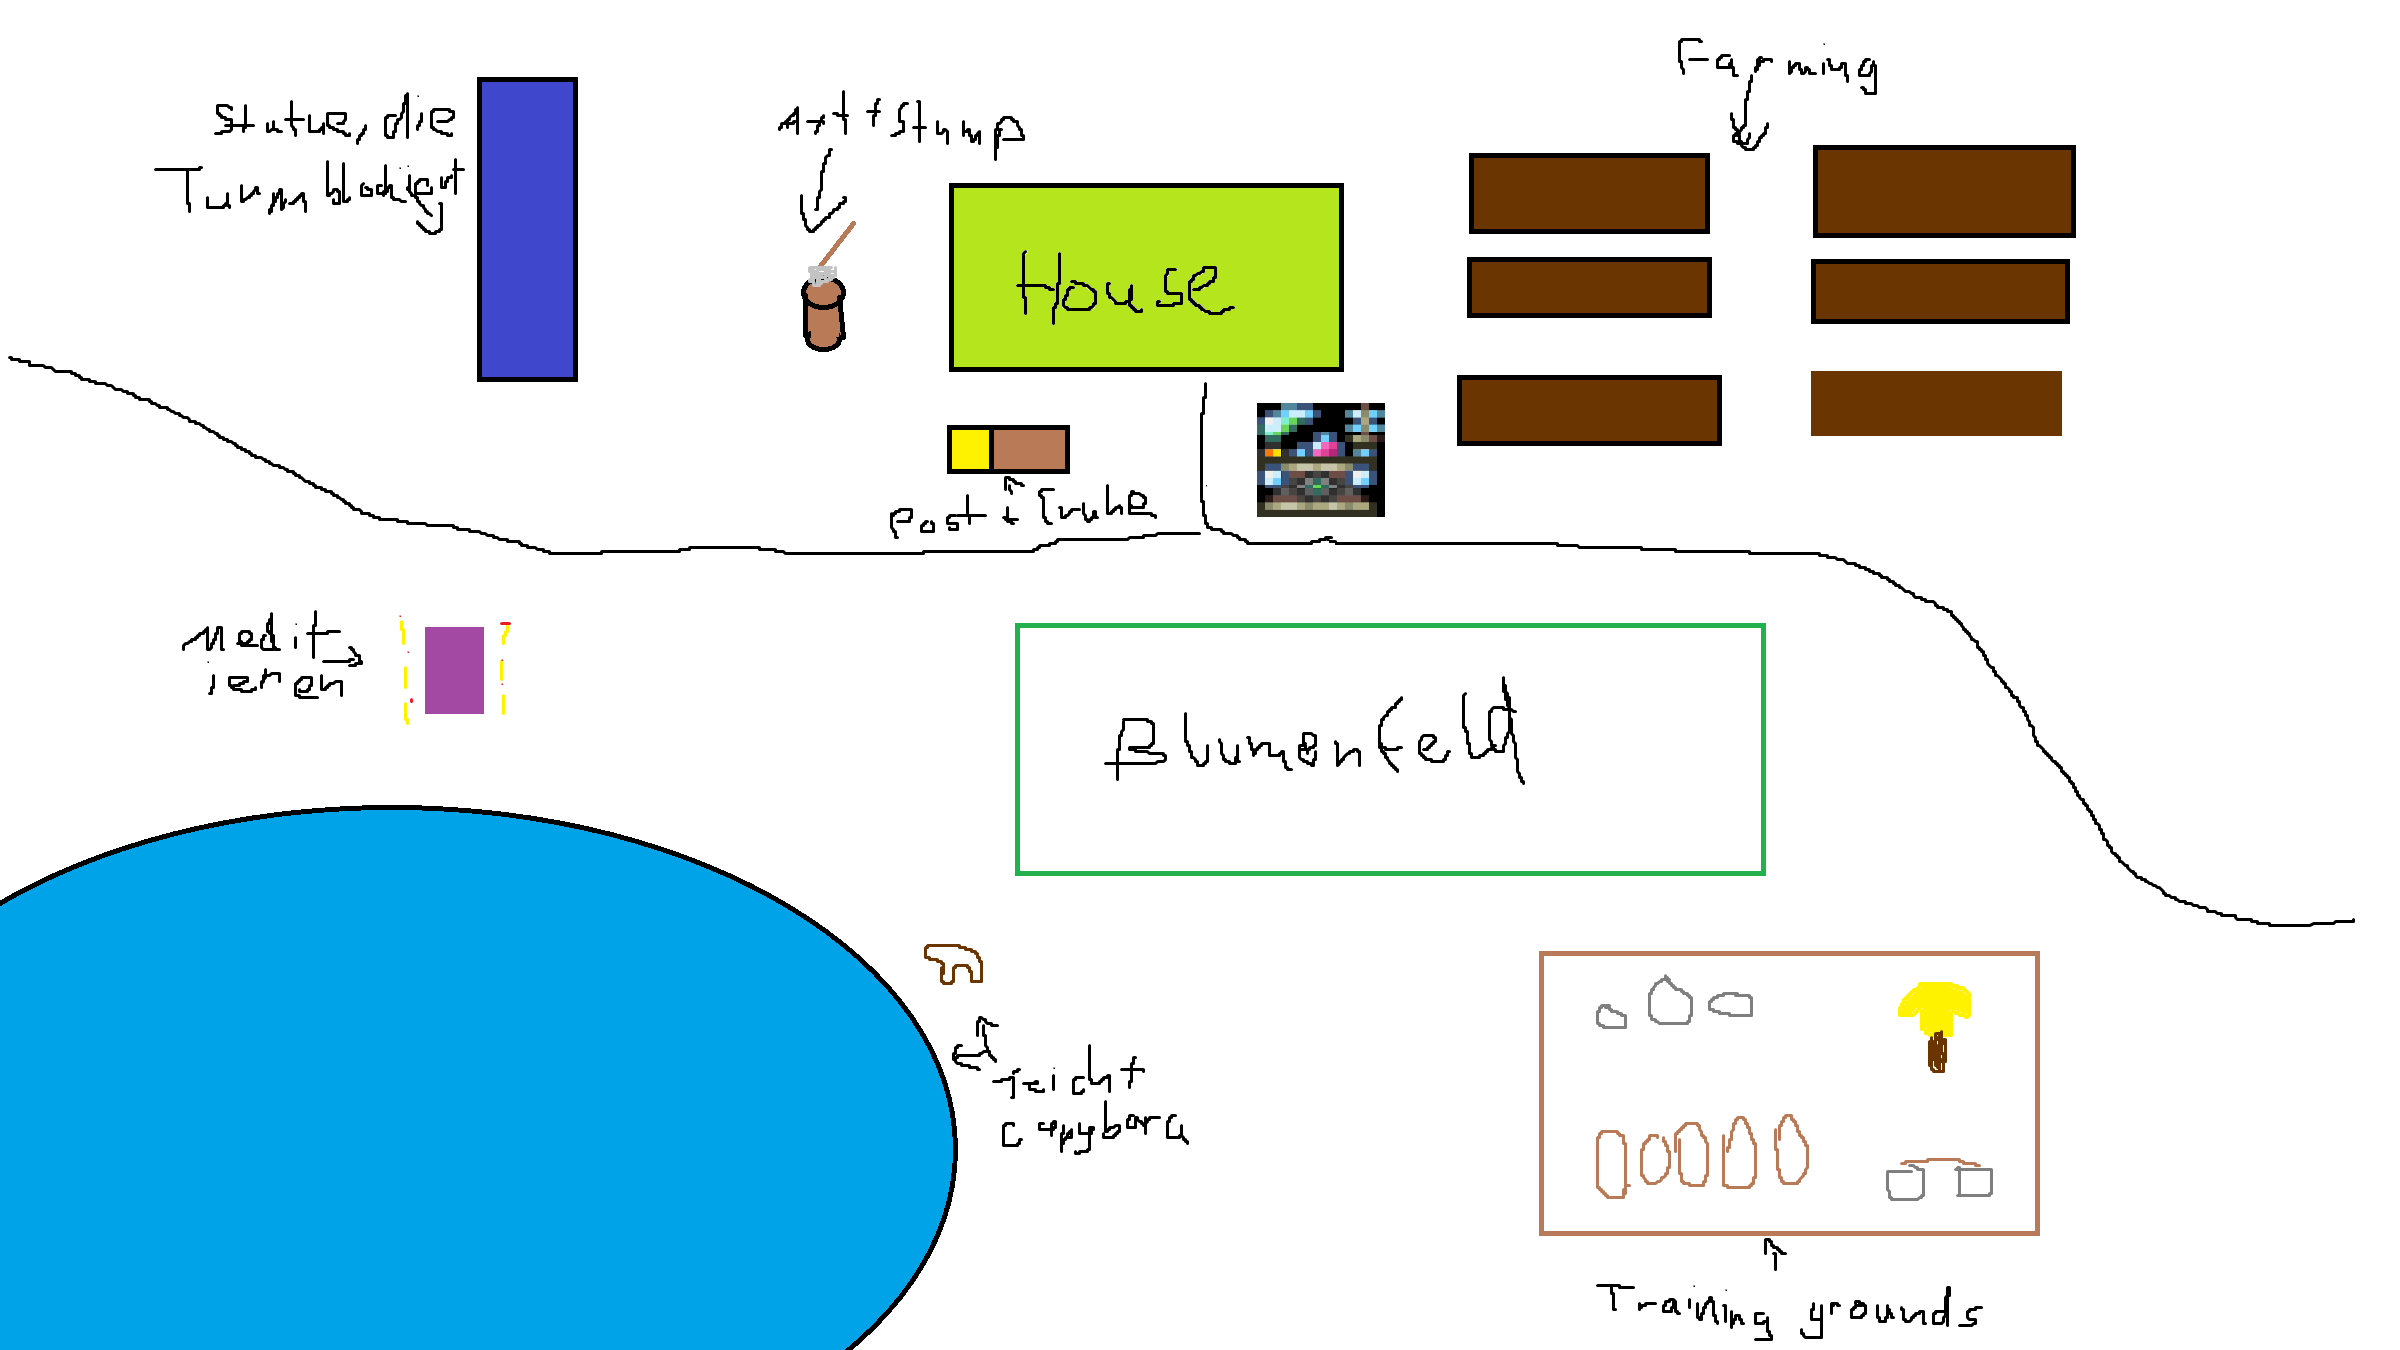 Farming
Statue, die
Turm blockiert
Axt + Stump
House
Post + Truhe
Medit
ieren
Blumenfeld
Teich +
Capybara
Training grounds